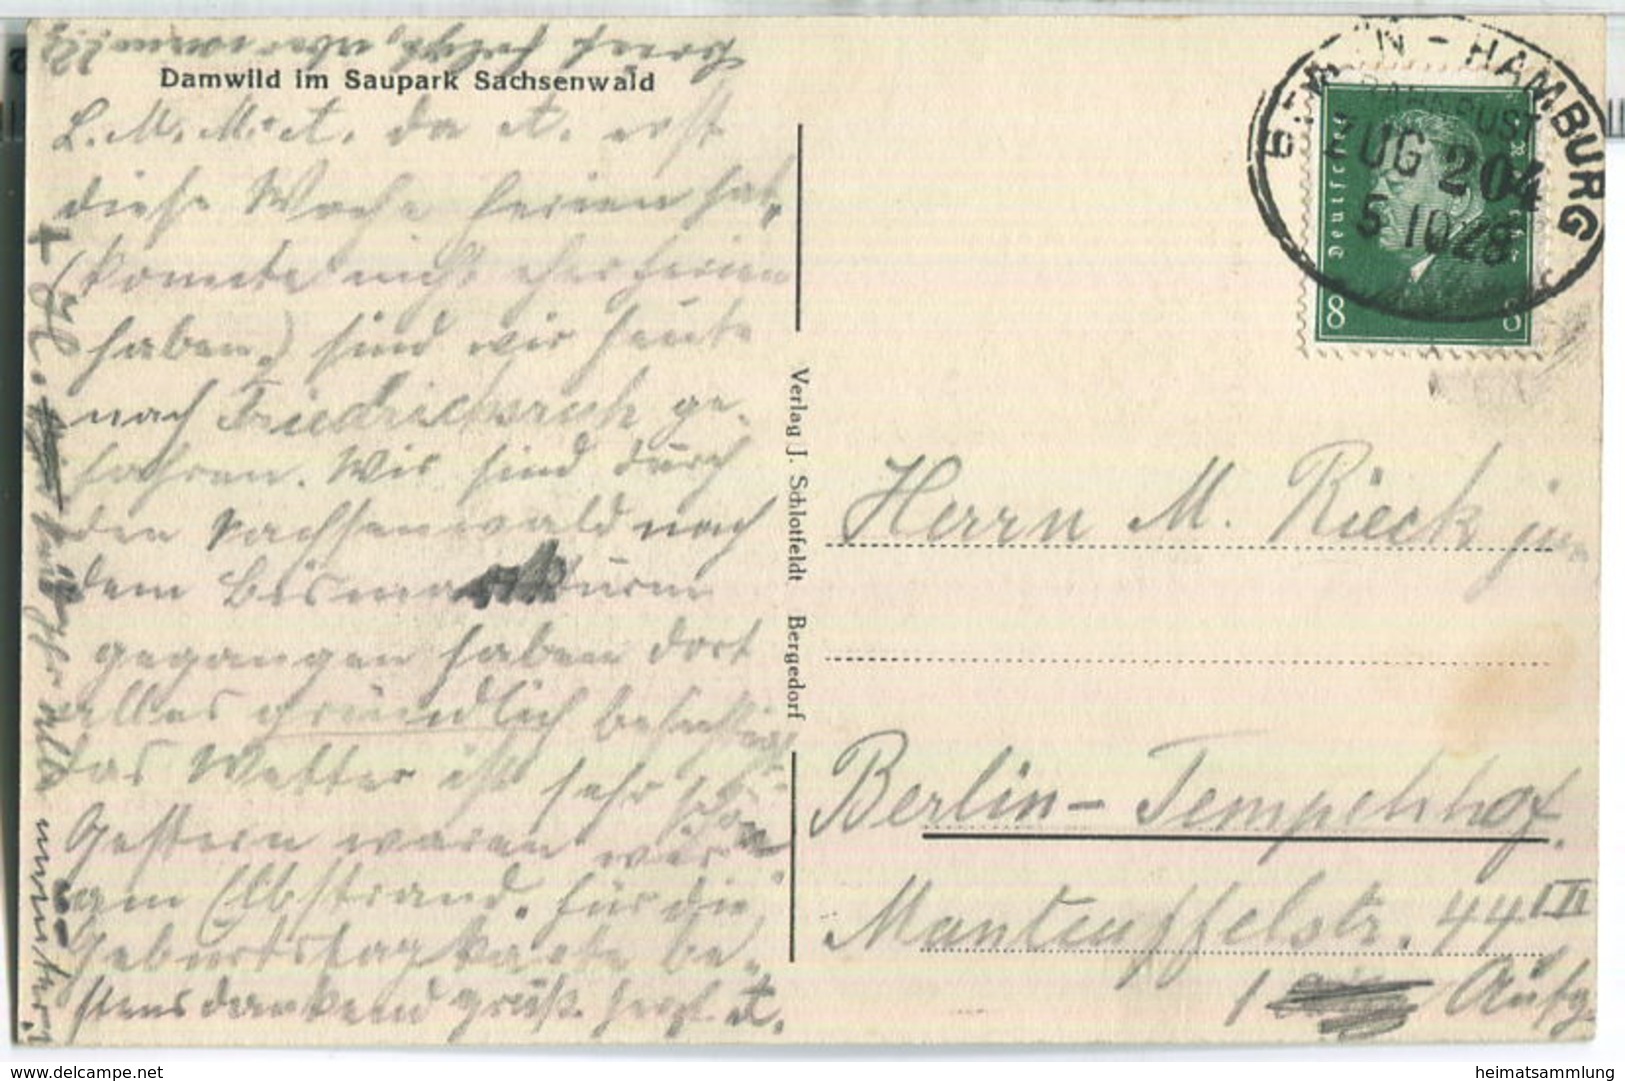 Damwild im Saupark Sachsenwald
L. M. M. + A. da A. erst
diese Woche Ferien hat,
(konnte nicht eher Ferien
haben.) sind wir heute
nach Friedrichsruh ge-
fahren. Wir sind durch
den Sachsenwald nach
dem Bismarckturm
gegangen haben dort
alles gründlich besichtigt
das Wetter ist sehr schön
Gestern waren wir
am Elbstrand. Für die
Geburtstagskarte be-
stens dankend grüßt herzl. A.
Verlag J. Schlotfeldt Bergedorf
BERLIN - HAMBURG
BAHNPOST
ZUG 204
5 10 28
Deutsches Reich
8 8
Herrn M. Rieck jun
Berlin-Tempelhof.
Manteuffelstr. 44 III
1 Aufg.
delcampe.net
heimatsammlung